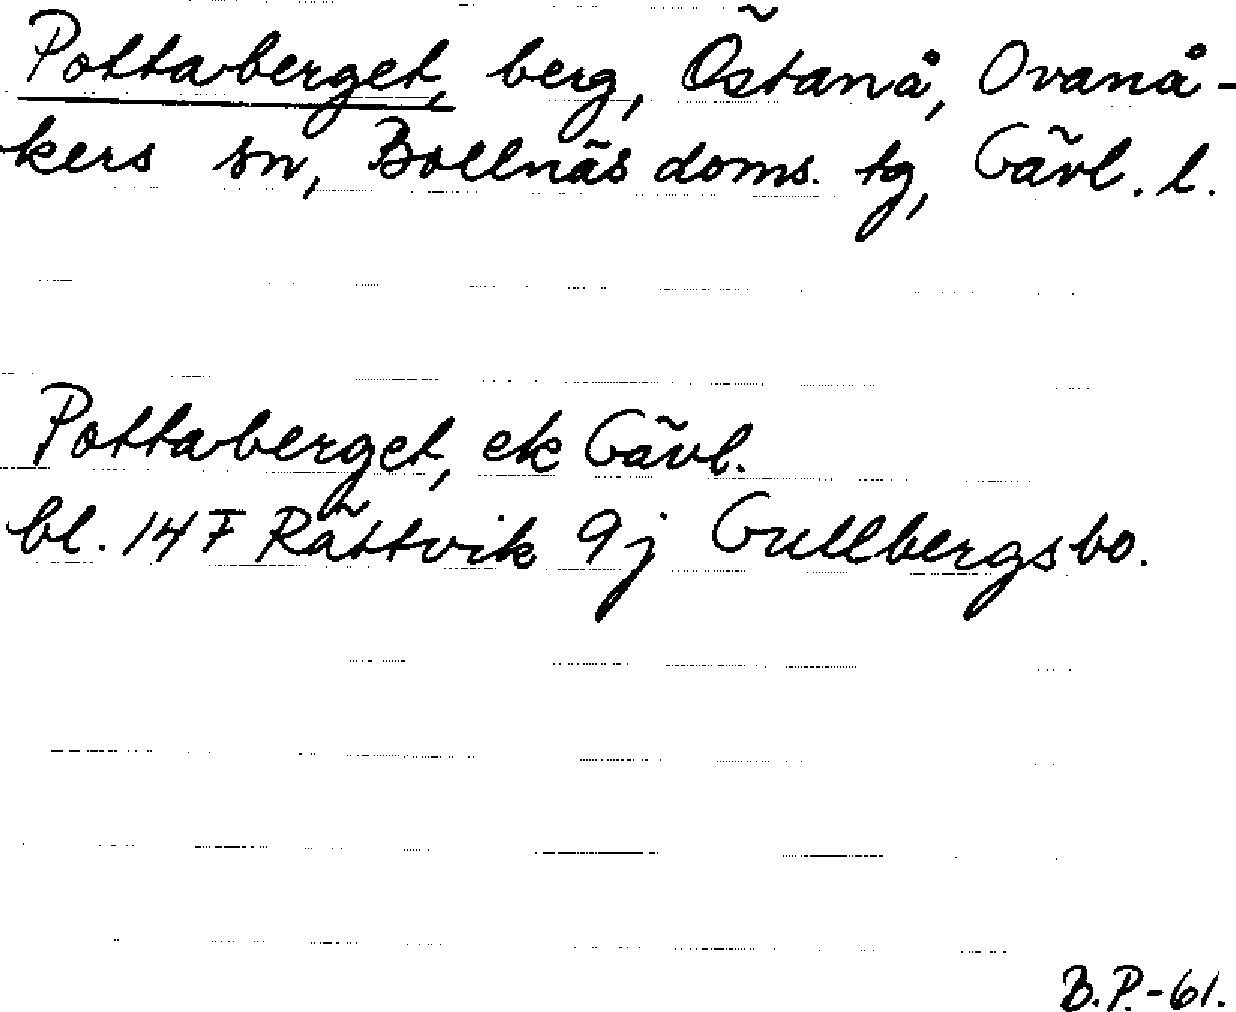 Pottaberget, berg, Östanå, Ovanå-
kers sn, Bollnäs doms. tg, Gävl. l.
Pottaberget, ek Gävl.
bl. 14 F Rättvik 9j Gullbergsbo.
B.P.-61.